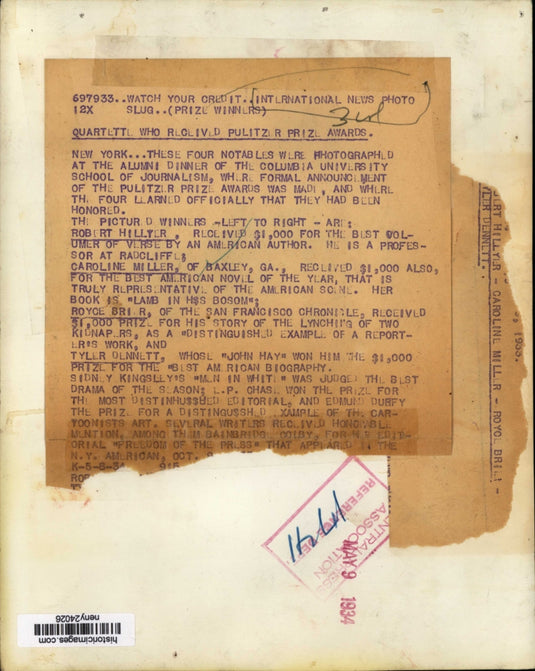 697933..WATCH YOUR CREDIT..INTERNATIONAL NEWS PHOTO
12X SLUG..(PRIZE WINNERS)
QUARTETTE WHO RECEIVED PULITZER PRIZE AWARDS.
NEW YORK...THESE FOUR NOTABLES WERE PHOTOGRAPHED
AT THE ALUMNI DINNER OF THE COLUMBIA UNIVERSITY
SCHOOL OF JOURNALISM, WHERE FORMAL ANNOUNCEMENT
OF THE PULITZER PRIZE AWARDS WAS MADE, AND WHERE
THE FOUR LEARNED OFFICIALLY THAT THEY HAD BEEN
HONORED.
THE PICTURED WINNERS -LEFT TO RIGHT - ARE:
ROBERT HILLYER, RECEIVED $1,000 FOR THE BEST VOL-
UMER OF VERSE BY AN AMERICAN AUTHOR. HE IS A PROFES-
SOR AT RADCLIFFE;
CAROLINE MILLER, OF BAXLEY, GA., RECEIVED $1,000 ALSO,
FOR THE BEST AMERICAN NOVEL OF THE YEAR, THAT IS
TRULY REPRESENTATIVE OF THE AMERICAN SCENE. HER
BOOK IS "LAMB IN HIS BOSOM";
ROYCE BRIER, OF THE SAN FRANCISCO CHRONICLE, RECEIVED
$1,000 PRIZE FOR HIS STORY OF THE LYNCHING OF TWO
KIDNAPERS, AS A "DISTINGUISHED EXAMPLE OF A REPORT-
ER'S WORK, AND
TYLER DENNETT, WHOSE "JOHN HAY" WON HIM THE $1,000
PRIZE FOR THE "BEST AMERICAN BIOGRAPHY.
SIDNEY KINGSLEY'S "MEN IN WHITE" WAS JUDGED THE BEST
DRAMA OF THE SEASON; E.P. CHASE WON THE PRIZE FOR
THE MOST DISTINHUSSHED EDITORIAL, AND EDMUND DUFFY
THE PRIZE FOR A DISTINGUSSHED EXAMPLE OF THE CAR-
TOONISTS ART. SEVERAL WRITERS RECEIVED HONORABLE
MENTION, AMONG THEM BAINBRIDGE COLBY, FOR HIS EDIT-
ORIAL "FREEDOM OF THE PRESS" THAT APPEARED IN THE
N.Y. AMERICAN, OCT.
K-5-8-34
ROB
BERT HILLYER - CAROLINE MILLER - ROYCE BRIER -
TYLER DENNETT.
CENTRAL PRESS
ASSOCIATION
REFERENCE DEPT
MAY 9 1934
historicimages.com
neny24026